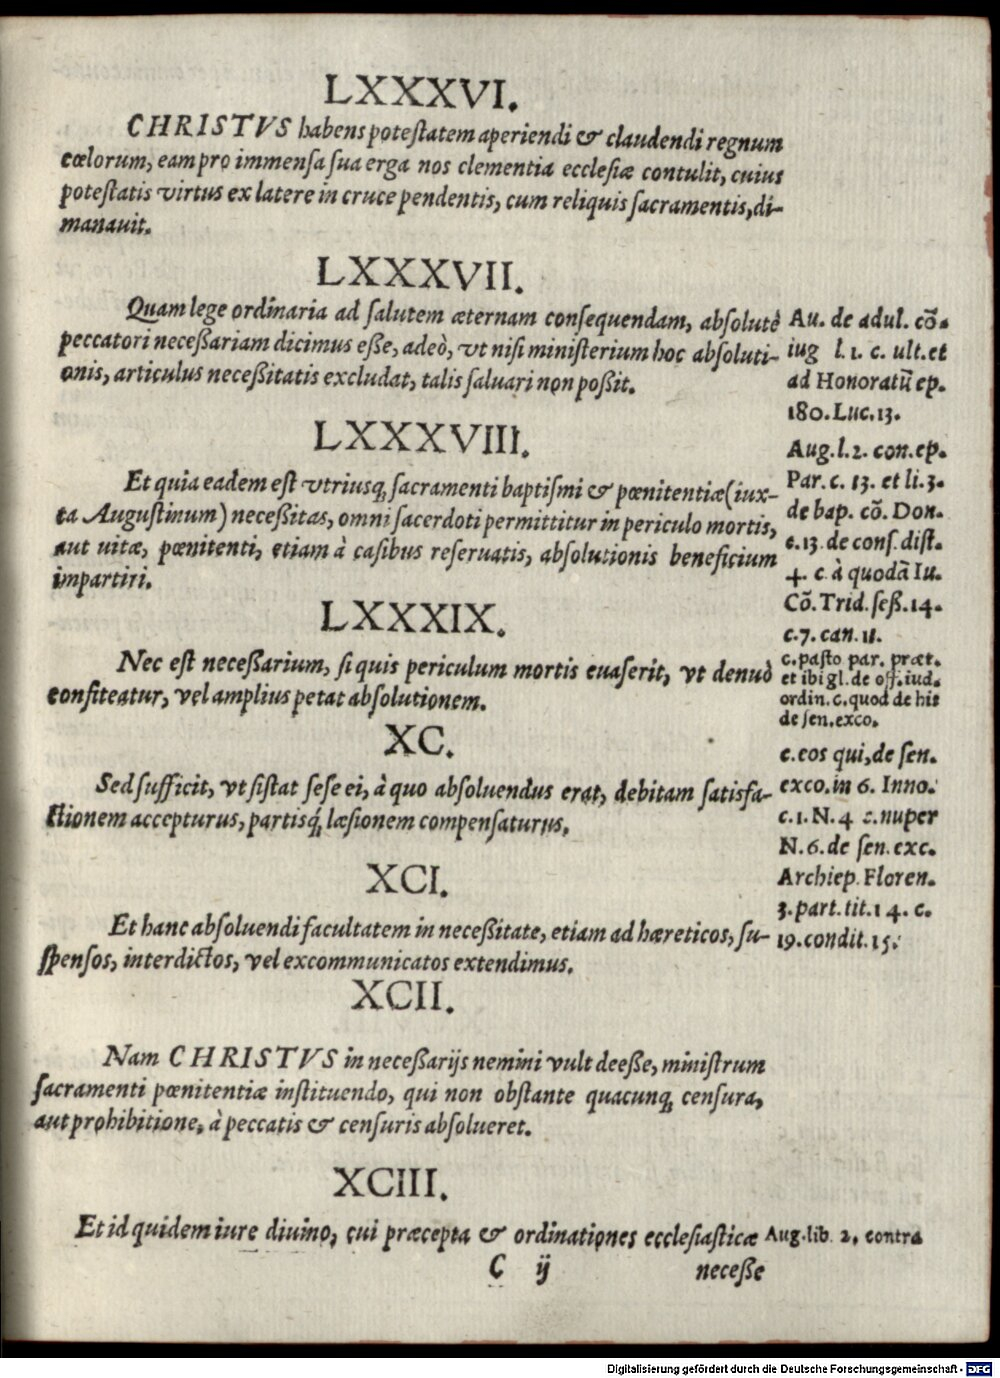 LXXXVI.
CHRISTVS habens potestatem aperiendi & claudendi regnum
cœlorum, eam pro immensa sua erga nos clementia ecclesiæ contulit, cuius
potestatis virtus ex latere in cruce pendentis, cum reliquis sacramentis, di-
manauit.
LXXXVII.
Quam lege ordinaria ad salutem æternam consequendam, absolutè
peccatori neceßariam dicimus eße, adeò, vt nisi ministerium hoc absoluti-
onis, articulus neceßitatis excludat, talis saluari non poßit.
Au. de adul. cõ.
iug l. 1. c. ult. et
ad Honoratũ ep.
180. Luc. 13.
LXXXVIII.
Et quia eadem est vtriusq́; sacramenti baptismi & pœnitentiæ (iux-
ta Augustinum) neceßitas, omni sacerdoti permittitur in periculo mortis,
aut uitæ, pœnitenti, etiam à casibus reseruatis, absolutionis beneficium
impartiri.
Aug. l. 2. con. ep.
Par. c. 13. et li. 3.
de bap. cõ. Don.
c. 13. de cons. dist.
4. c. à quodã Iu.
Cõ. Trid. seß. 14.
c. 7. can. 11.
LXXXIX.
Nec est neceßarium, si quis periculum mortis euaserit, vt denuò
confiteatur, vel amplius petat absolutionem.
c. pasto par. præt.
et ibi gl. de off. iud.
ordin. c. quod de his
de sen. exco.
XC.
Sed sufficit, vt sistat sese ei, à quo absoluendus erat, debitam satisfa-
ctionem accepturus, partisq́; læsionem compensaturus.
c. eos qui, de sen.
exco. in 6. Inno.
c. 1. N. 4 c. nuper
N. 6. de sen. exc.
Archiep. Floren.
3. part. tit. 14. c.
19. condit. 15.
XCI.
Et hanc absoluendi facultatem in neceßitate, etiam ad hæreticos, su-
spensos, interdictos, vel excommunicatos extendimus.
XCII.
Nam CHRISTVS in neceßarijs nemini vult deeße, ministrum
sacramenti pœnitentiæ instituendo, qui non obstante quacunq; censura,
aut prohibitione, à peccatis & censuris absolueret.
XCIII.
Et id quidem iure diuino, cui præcepta & ordinationes ecclesiasticæ
Aug. lib. 2. contra
C ij
neceße
Digitalisierung gefördert durch die Deutsche Forschungsgemeinschaft - DFG